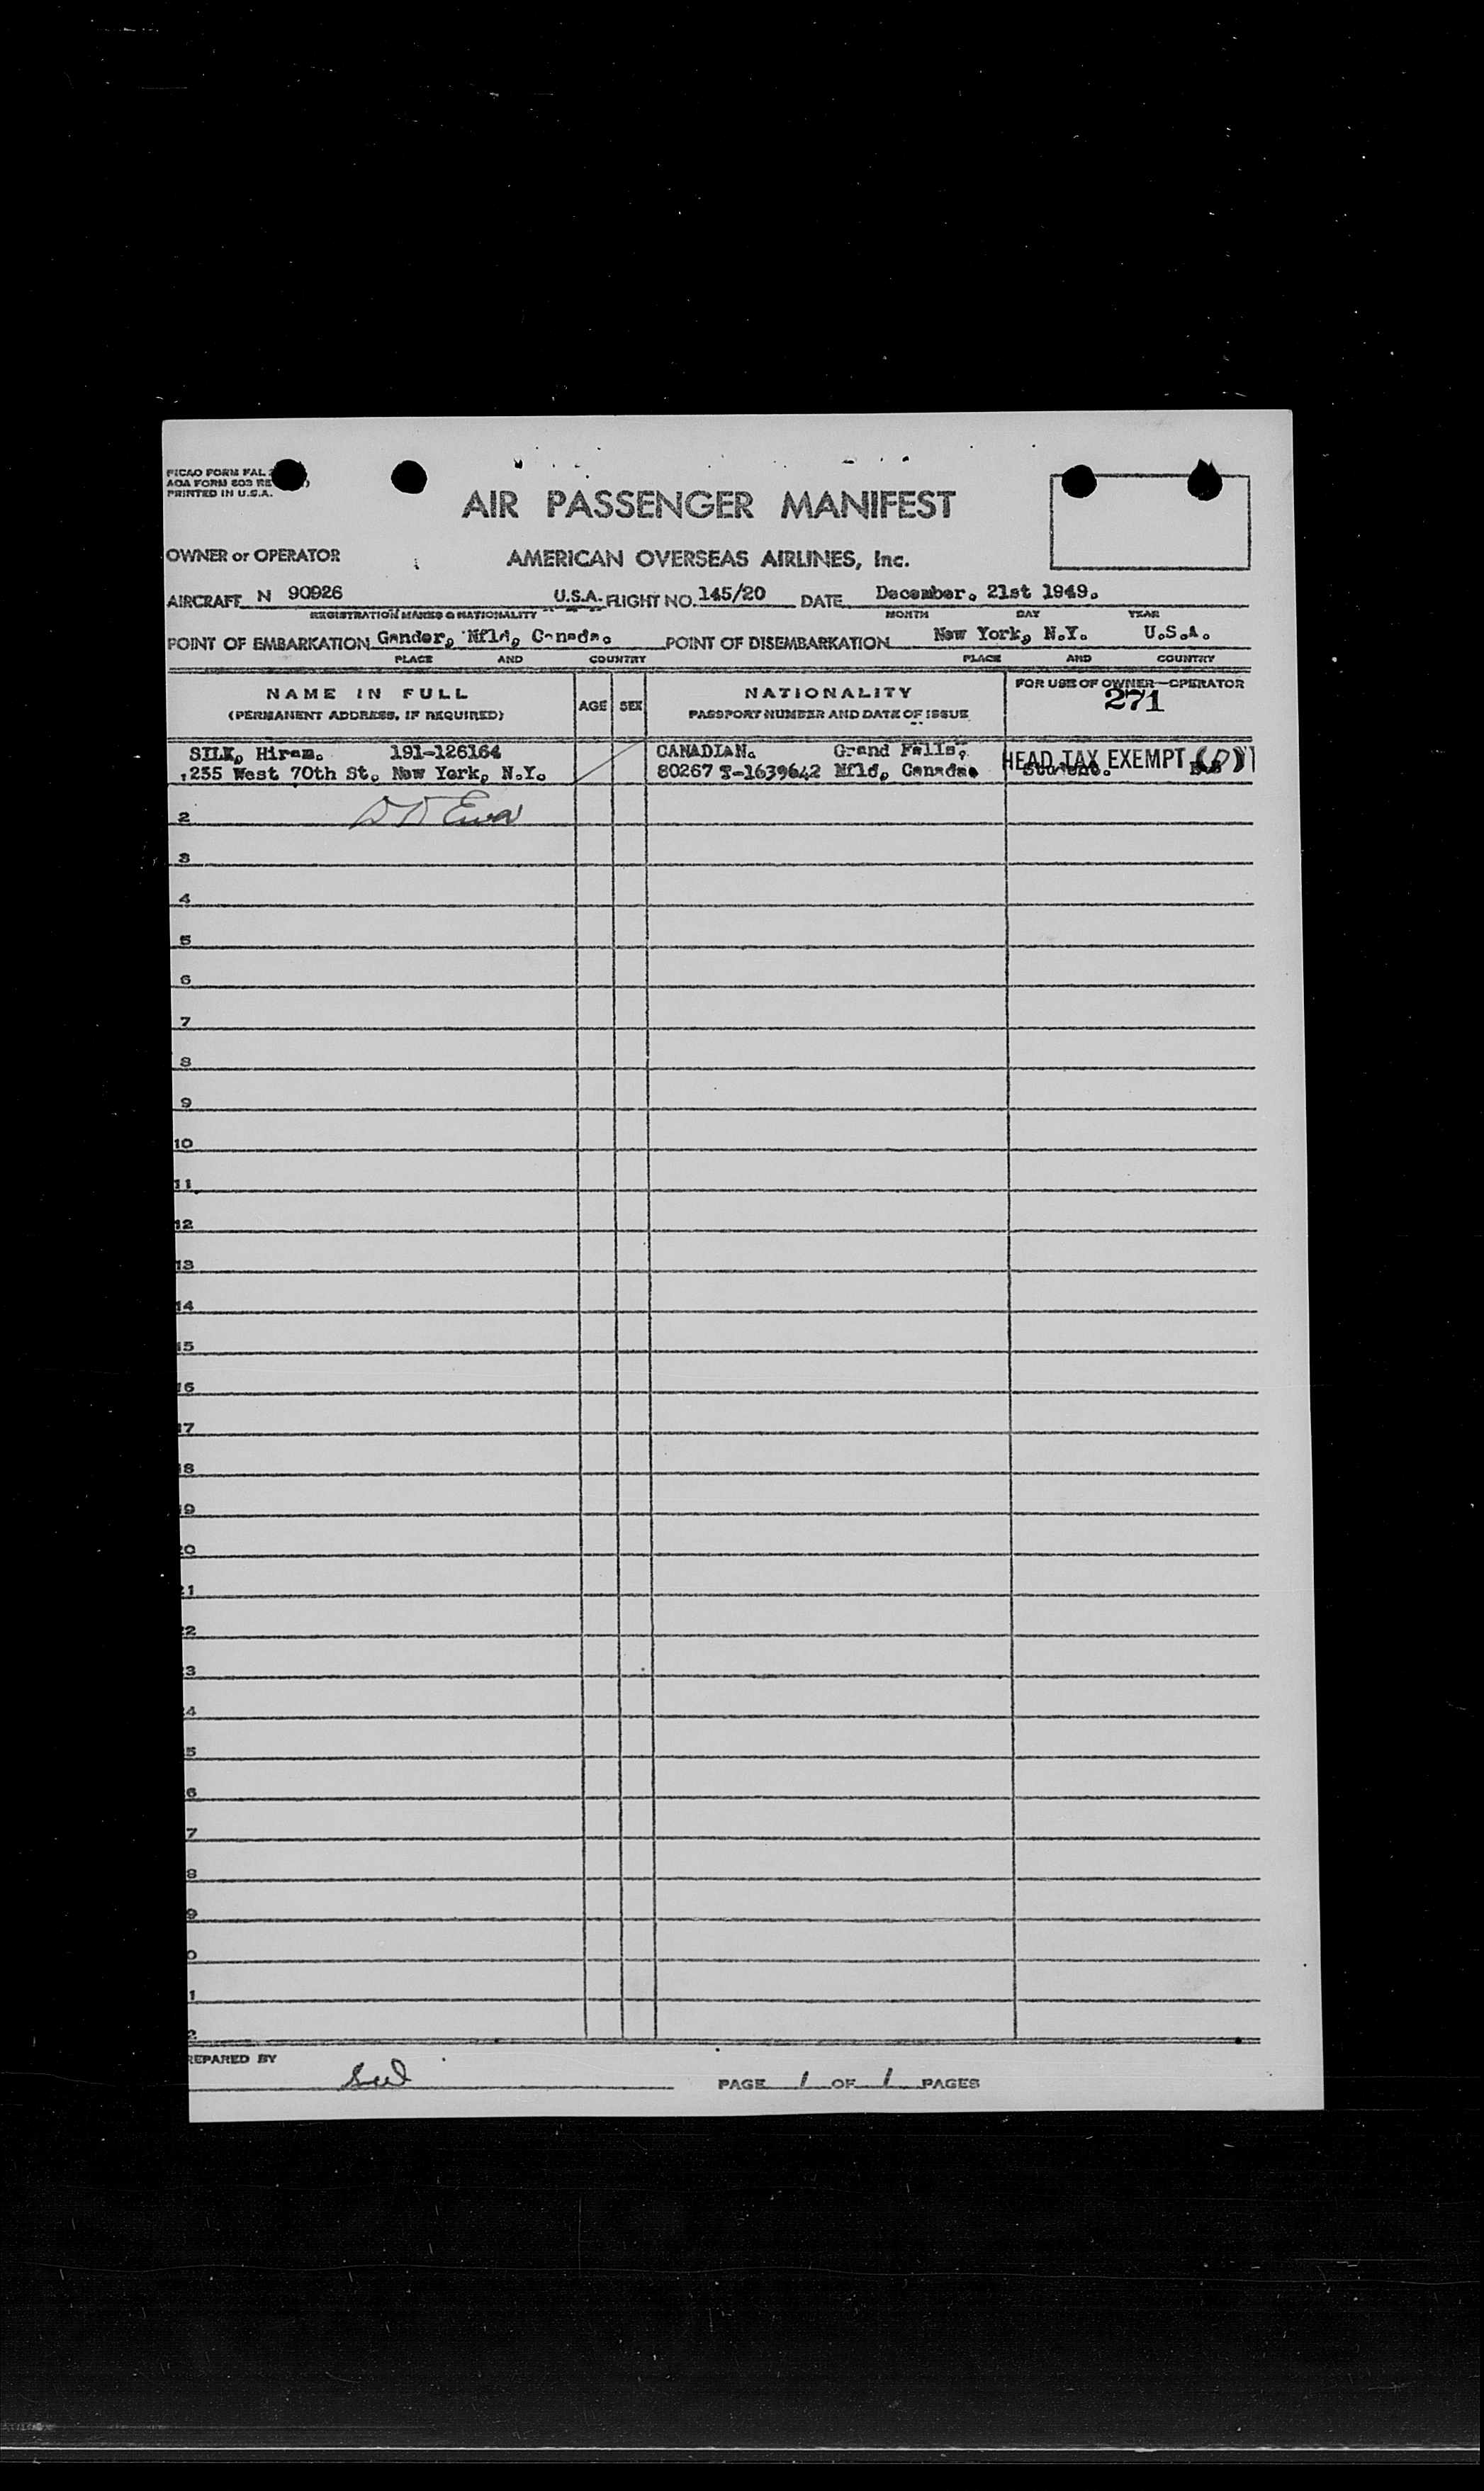 PICAO FORM FAL
AOA FORM 803 RE
PRINTED IN U.S.A.
AIR PASSENGER MANIFEST
OWNER or OPERATOR AMERICAN OVERSEAS AIRLINES, Inc.
AIRCRAFT N 90926 U.S.A. FLIGHT NO. 145/20 DATE December. 21st 1949.
REGISTRATION MARKS & NATIONALITY MONTH DAY YEAR
POINT OF EMBARKATION Gander, Nfld, Canada. POINT OF DISEMBARKATION New York, N.Y. U.S.A.
PLACE AND COUNTRY PLACE AND COUNTRY
NAME IN FULL AGE SEX NATIONALITY FOR USE OF OWNER—OPERATOR
(PERMANENT ADDRESS, IF REQUIRED) PASSPORT NUMBER AND DATE OF ISSUE 271
SILK, Hiram. 191-126164 CANADIAN. Grand Falls, HEAD TAX EXEMPT
255 West 70th St. New York, N.Y. 80267 T-1639642 Nfld, Canada. Student.
2
3
4
5
6
7
8
9
10
11
12
13
14
15
16
17
18
19
20
21
22
23
4
5
6
7
8
9
0
1
2
REPARED BY
PAGE 1 OF 1 PAGES